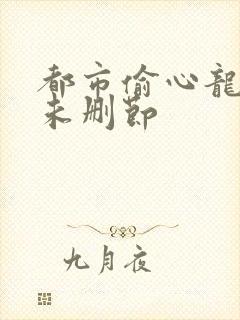 都市偷心龍
未删節
九月夜